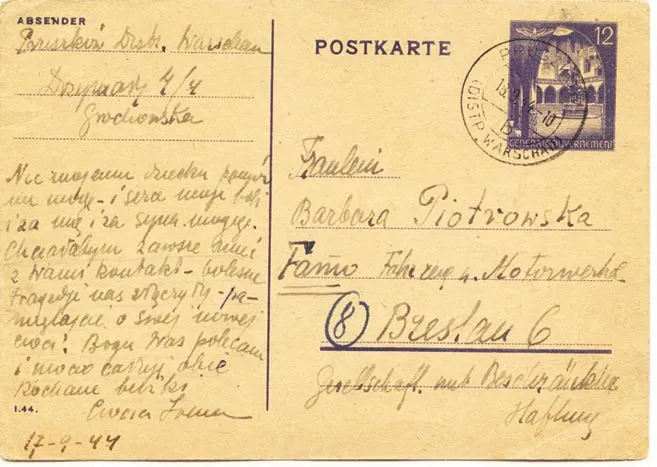 ABSENDER
Pruszków Distr. Warschau
4/4
Grochowska
Nic swojemu dziecku pomóc
nie mogę - i serce moje boli
i za nią i za syna mojego.
Chciałabym zawsze mieć
z Wami kontakt - bolesne
tragedje nas złączyły - pa-
miętajcie o swej nowej
cioci! Bogu Was polecam
i mocno całuję obie
kochane bebiki
Ciocia
17-9-44
I.44.
POSTKARTE
12
GENERALGOUVERNEMENT
(DISTR. WARSCHAU)
Fräulein
Barbara Piotrowska
Famo Fahrzeug u. Motorwerke
(8) Breslau 6
Gesellschaft mit Beschränkter
Haftung